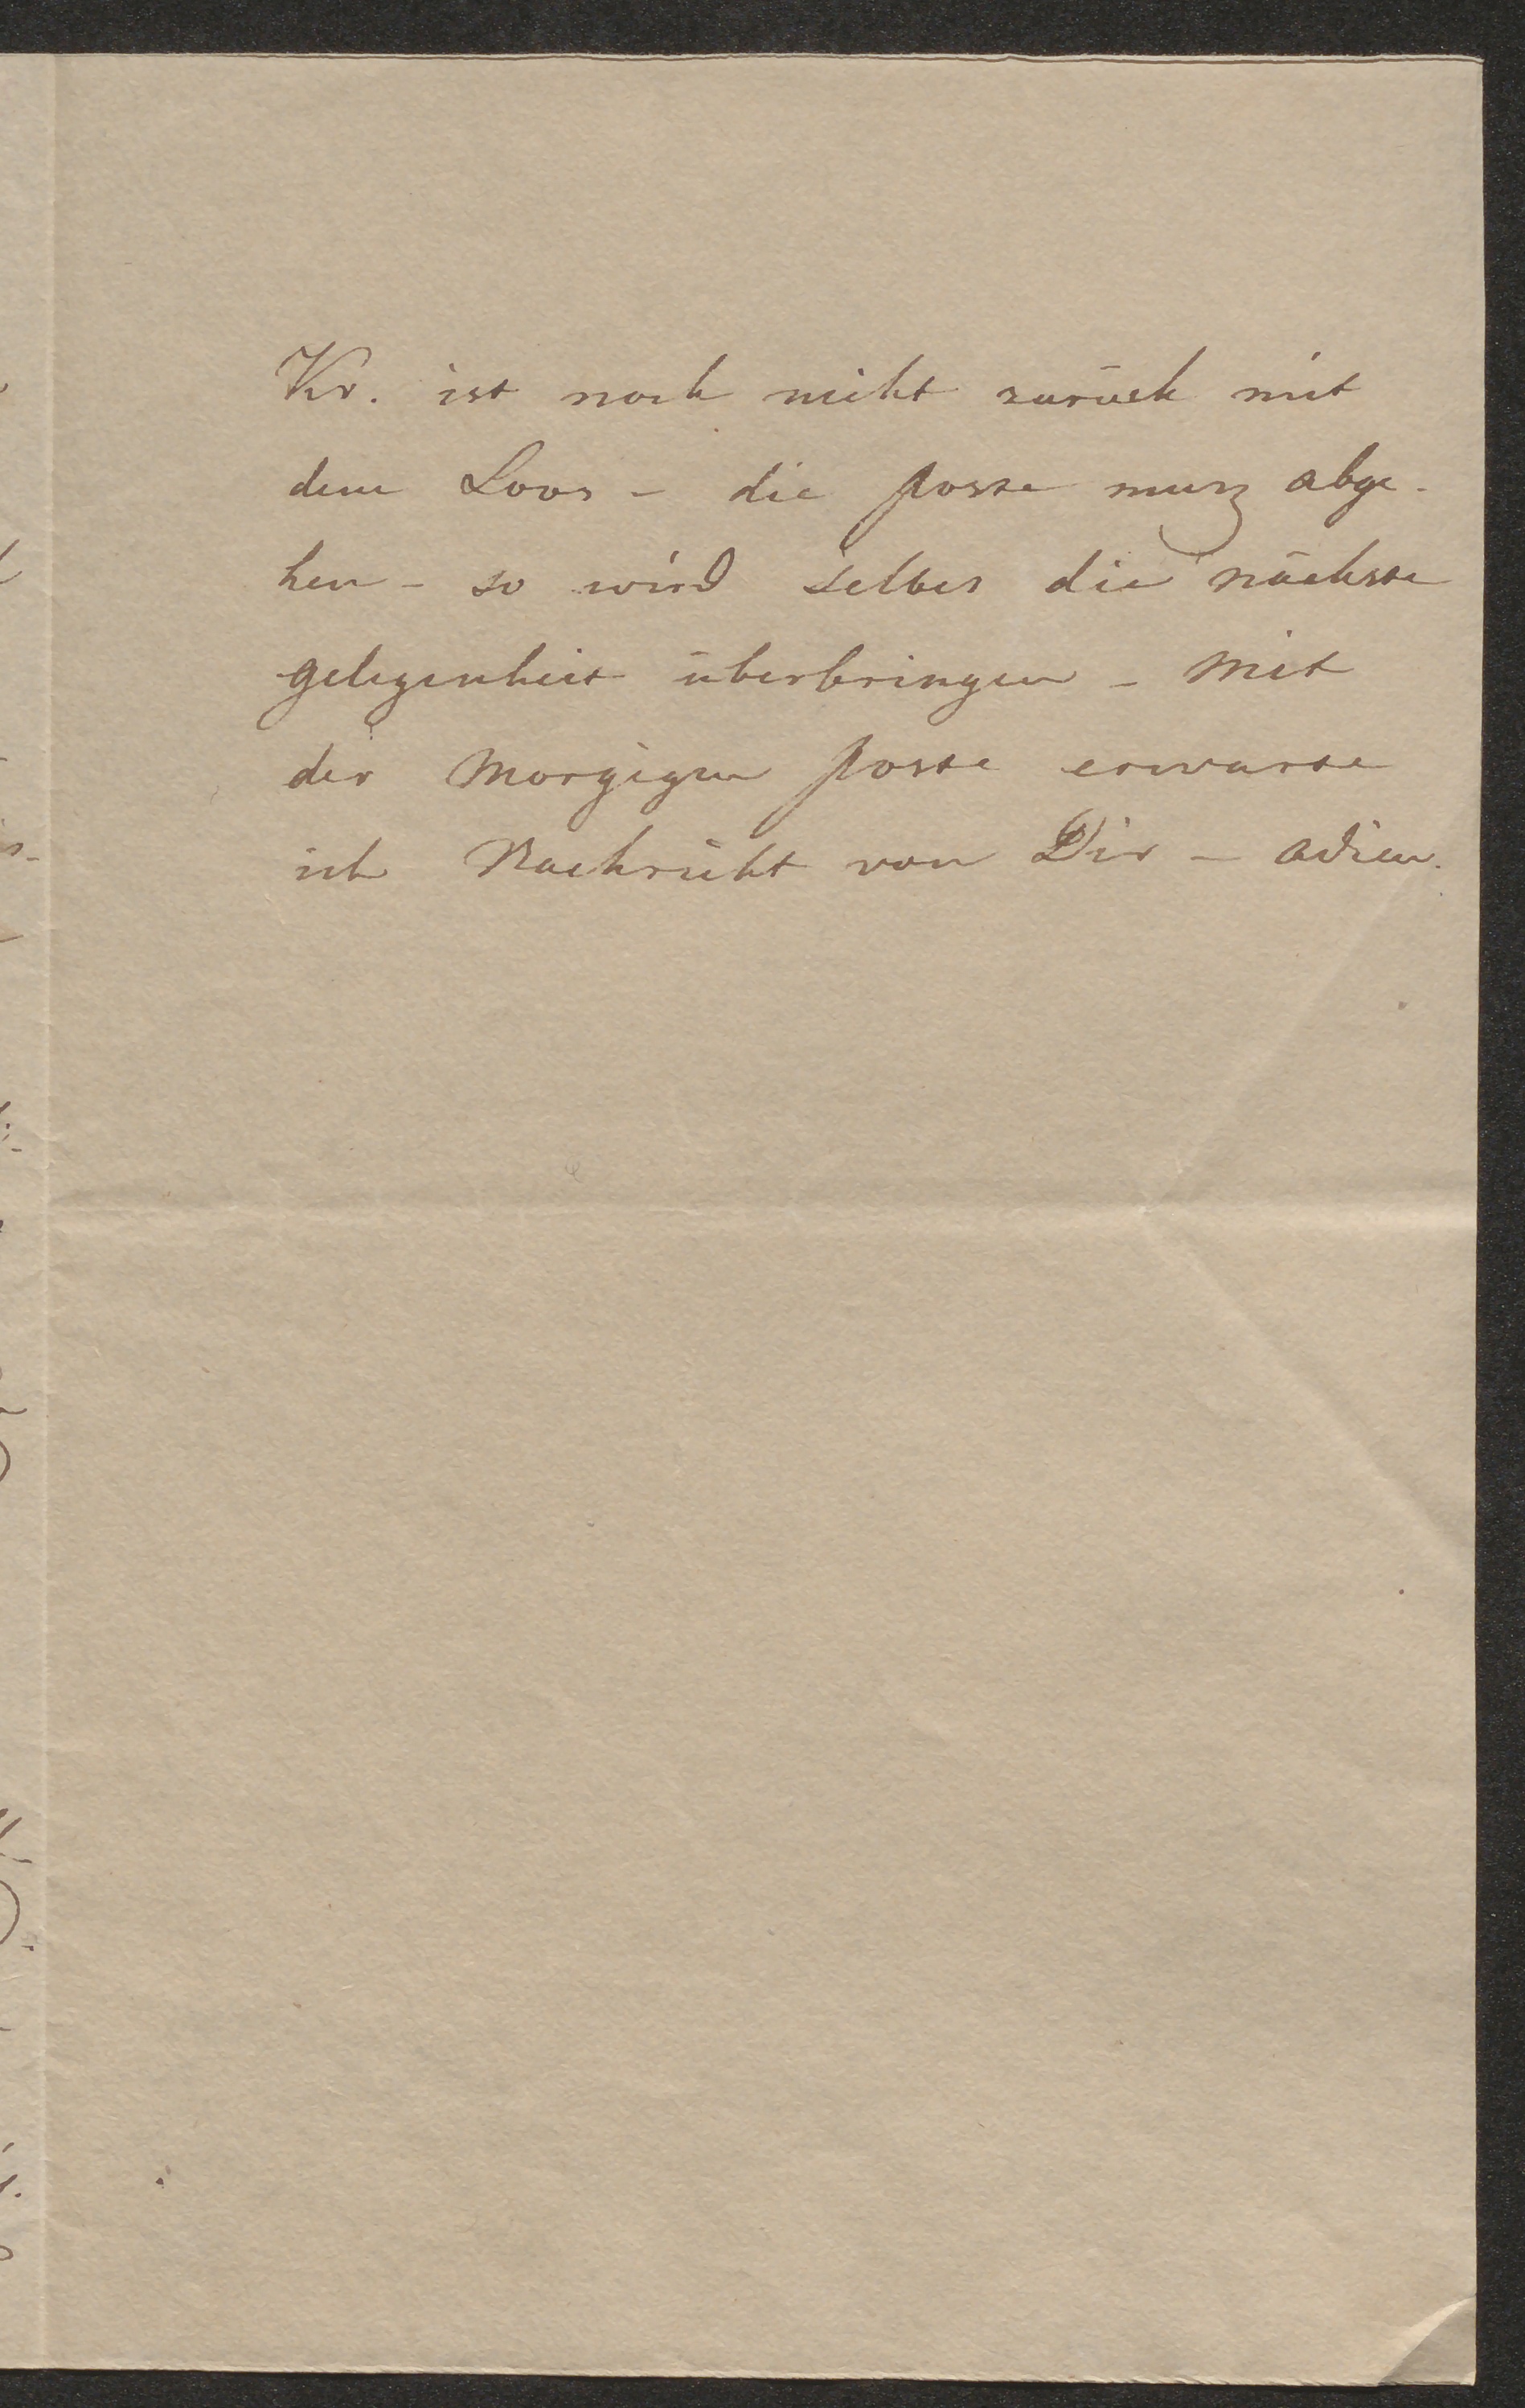 Kr. ist noch nicht zurück mit
dem Loos - die poste musz abge-
hen - so wird selbes die nächste
gelegenheit überbringen - mit
der Morgigen poste erwarte
ich Nachricht von Dir - adieu.